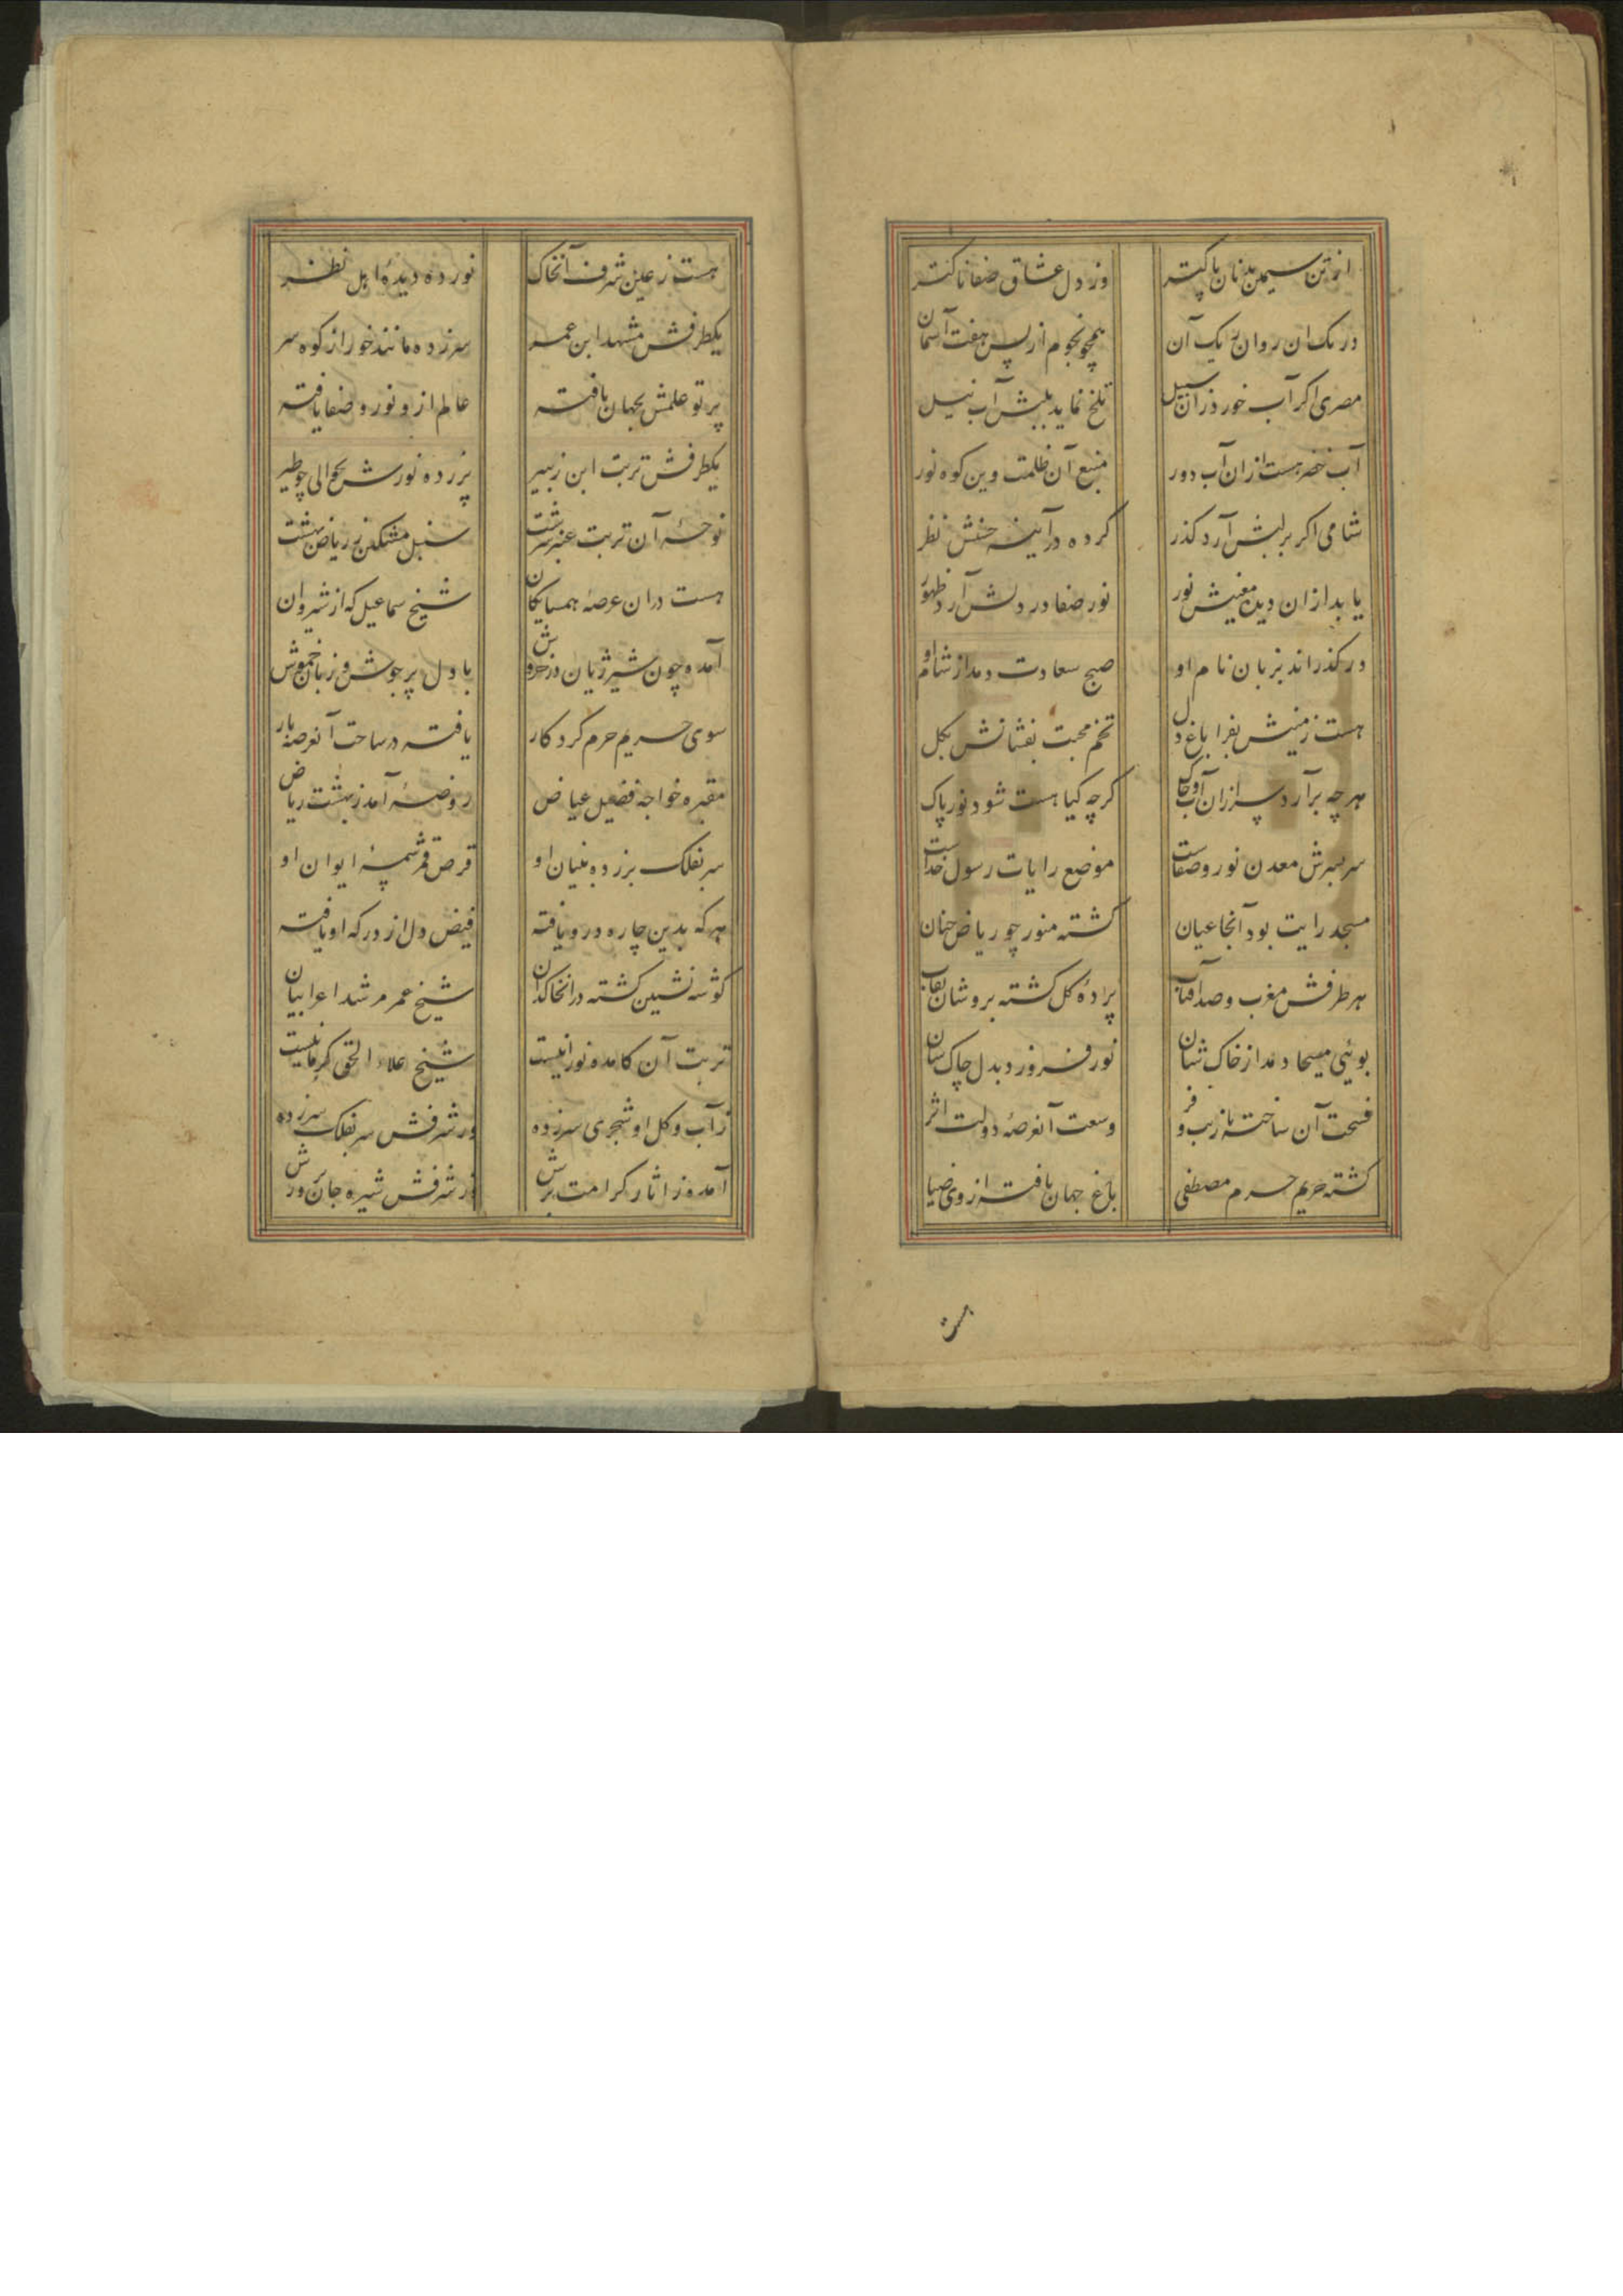 از تن سیمین بدنان پاکتر وز دل عشاق صفاناکتر
در تک آن روان ریک آن همچو نجوم از پس هفت آسمان
مصری اکر آب خورد زان سبیل تلخ نماید بلبش آب نیل
آب خضر هست ازان آب دور منبع آن ظلمت وین کوه نور
شامی اکر بر لبش آرد کذر کرده در آیینه حسنش نظر
یابد ازان دیده معنیش نور نور صفا در دلش آرد ظهور
در کذراند بزبان نام او صبح سعادت دمد از شام او
هست زمینش بفرا باغ دل تخم محبت بفشانش بکل
هرچه برآرد سر ازان آب و خاک کرچه کیا هست شود نور پاک
سربسرش معدن نور و صفاست موضع رایات رسول خداست
مسجد رایت بود آنجا عیان کشته منور چو ریاض جنان
هر طرفش مغرب و صد آفتاب پرده کل کشته بروشان نقاب
بوئی مسیحا دمد از خاک شان نور فروزد بدل چاک شان
فسحت آن ساخته با زیب و فر وسعت آنعرصه دولت اثر
کشته حریم حرم مصطفی باغ جهان یافته از وی ضیا
هست ز عین شرف آنخاک نور ده دیده اهل نظر
یکطرفش مشهد ابن عمر سر زده مانند خور از کوه سر
پرتو علمش بجهان یافته عالم ازو نور و صفا یافته
یکطرفش تربت ابن زبیر پر زده نورش بحوالی چو طیر
نوحه آن تربت عنبر سرشت سنبل مشکین ز ریاض بهشت
هست دران عرصه همسایکان شیخ سماعیل که از شیروان
آمده چون شیر ژیان در خروش با دل پرجوش و زبان خموش
سوی حریم حرم کردکار یافته در ساحت آنعرصه بار
مقبره خواجه فضیل عیاض روضه آمد ز بهشت ریاض
سر بفلک بر زده بنیان او قرص قمر شمسه ایوان او
هر که بدین چاره درو یافته فیض دل از درکه او یافته
کوشه نشین کشته در آنخاکدان شیخ عمر مرشد اعرابیان
تربت آن کامده نورانیست شیخ علاء الحق کرمانیست
ز آب و کل او شجری سر زده ور شرفش سر بفلک سر زده
آمده ز آثار کرامت برش از شرفش شیره جان پرورش